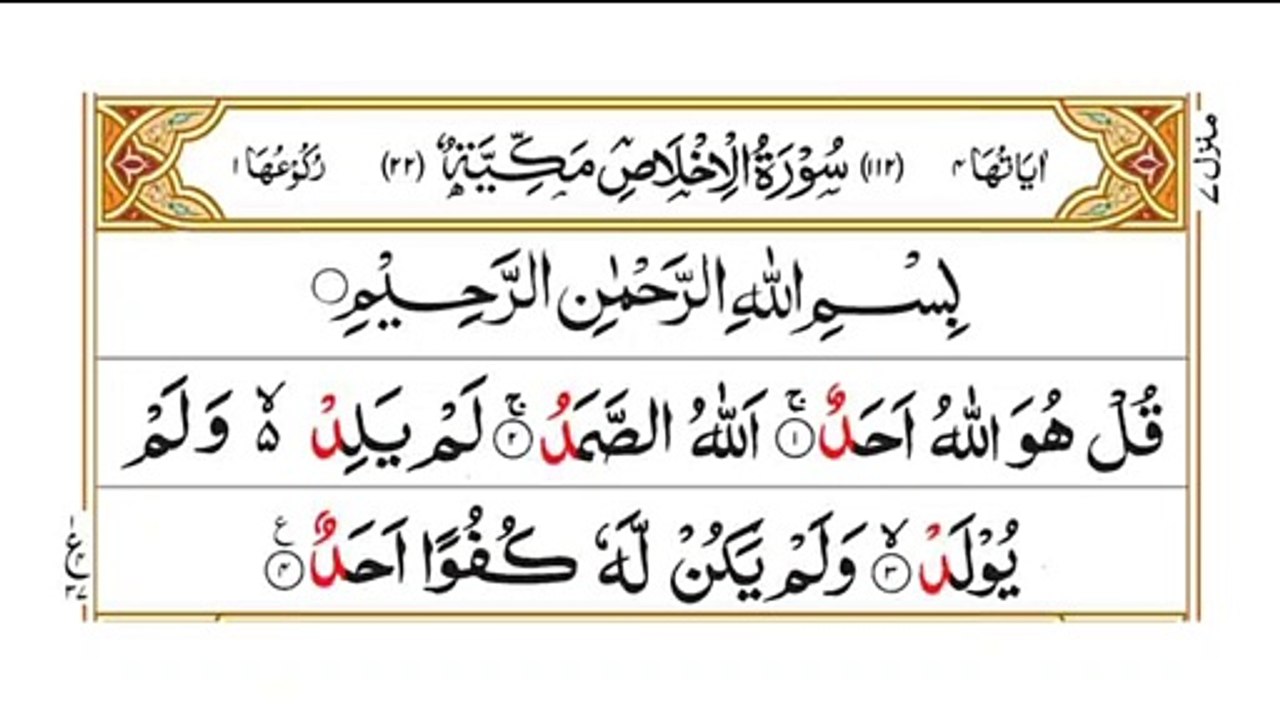 اٰيَاتُهَا ۴ (۱۱۲) سُوْرَةُ الْاِخْلَاصِ مَكِّيَّةٌ (۲۲) رُكُوْعُهَا ۱
مَنزل ۷
بِسْمِ اللّٰهِ الرَّحْمٰنِ الرَّحِيْمِ ○
قُلْ هُوَ اللّٰهُ اَحَدٌ ۚ ۱ اَللّٰهُ الصَّمَدُ ۚ ۲ لَمْ يَلِدْ ۙ ۵ وَلَمْ
يُوْلَدْ ۙ ۳ وَلَمْ يَكُنْ لَّهٗ كُفُوًا اَحَدٌ ع ۴
۱
ع ۴
۳۷